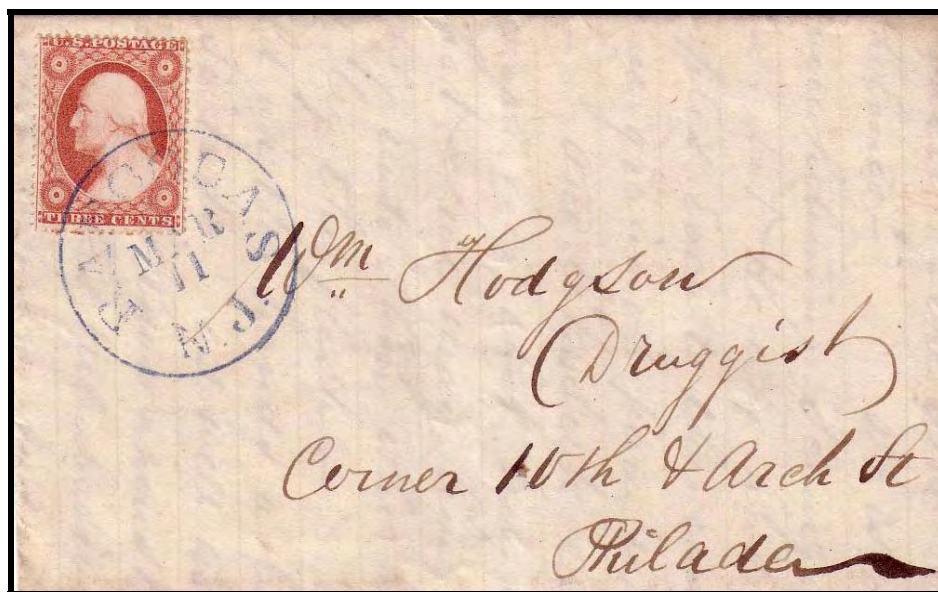 U.S. POSTAGE
THREE CENTS
RANCOCAS
MAR
11
N.J.
Wm Hodgson
Druggist
Corner 10th & Arch St
Philada